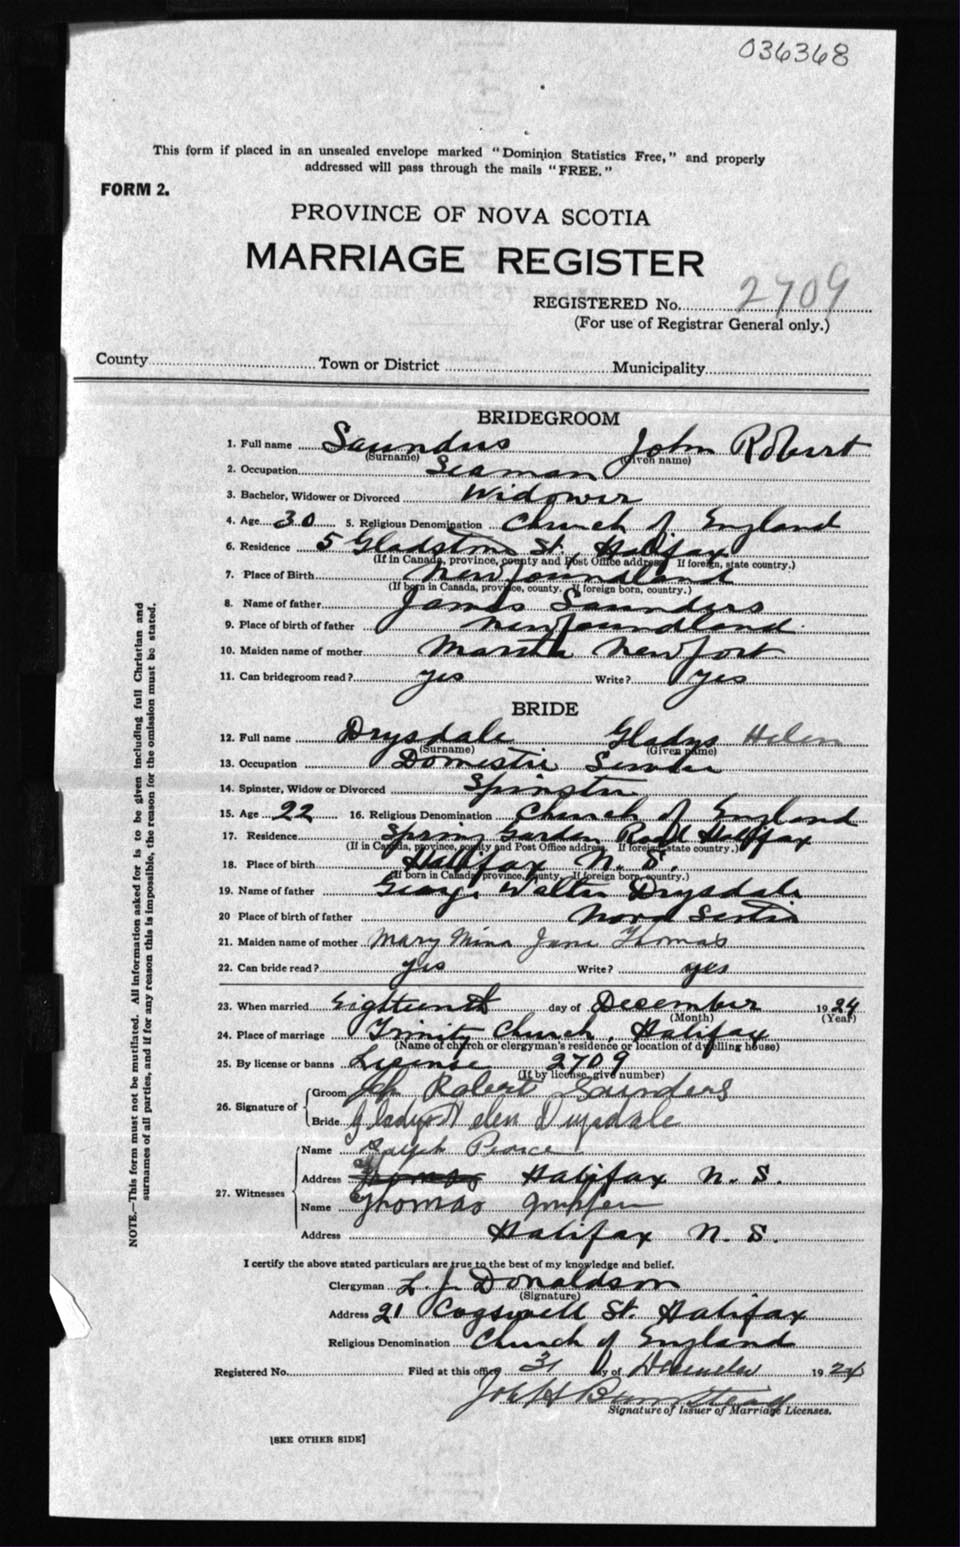 036368
This form if placed in an unsealed envelope marked "Dominion Statistics Free," and properly
addressed will pass through the mails "FREE."
FORM 2.
PROVINCE OF NOVA SCOTIA
MARRIAGE REGISTER
REGISTERED No. 2709
(For use of Registrar General only.)
County Town or District Municipality
BRIDEGROOM
1. Full name Saunders John Robert
(Surname) (Given name)
2. Occupation Seaman
3. Bachelor, Widower or Divorced Widower
4. Age 30 5. Religious Denomination Church of England
6. Residence 5 Gladstone St, Halifax
(If in Canada, province, county and Post Office address. If foreign, state country.)
7. Place of Birth Newfoundland
(If born in Canada, province, county. If foreign born, country.)
8. Name of father James Saunders
9. Place of birth of father Newfoundland
10. Maiden name of mother Martha Newfort
11. Can bridegroom read? yes Write? yes
BRIDE
12. Full name Drysdale Gladys Helen
(Surname) (Given name)
13. Occupation Domestic Servant
14. Spinster, Widow or Divorced Spinster
15. Age 22 16. Religious Denomination Church of England
17. Residence Spring Garden Road Halifax
(If in Canada, province, county and Post Office address. If foreign state country.)
18. Place of birth Halifax N. S.
(If born in Canada province, county. If foreign born, country.)
19. Name of father George Walter Drysdale
20 Place of birth of father Nova Scotia
21. Maiden name of mother Mary Mina Jane Thomas
22. Can bride read? yes Write? yes
23. When married Eighteenth day of December 1924
(Month) (Year)
24. Place of marriage Trinity Church, Halifax
(Name of church or clergyman's residence or location of dwelling house)
25. By license or banns License 2709
(If by license, give number)
26. Signature of
Groom Robert Saunders
Bride Gladys Helen Drysdale
27. Witnesses
Name Ralph Pearce
Address Halifax N. S.
Name Thomas
Address Halifax N. S.
I certify the above stated particulars are true to the best of my knowledge and belief.
Clergyman L. J. Donaldson
(Signature)
Address 21 Cogswell St. Halifax
Religious Denomination Church of England
Registered No. Filed at this office 31 day of December 1924
Signature of Issuer of Marriage Licenses.
[SEE OTHER SIDE]
NOTE.—This form must not be mutilated. All information asked for is to be given including full Christian and
surnames of all parties, and if for any reason this is impossible, the reason for the omission must be stated.